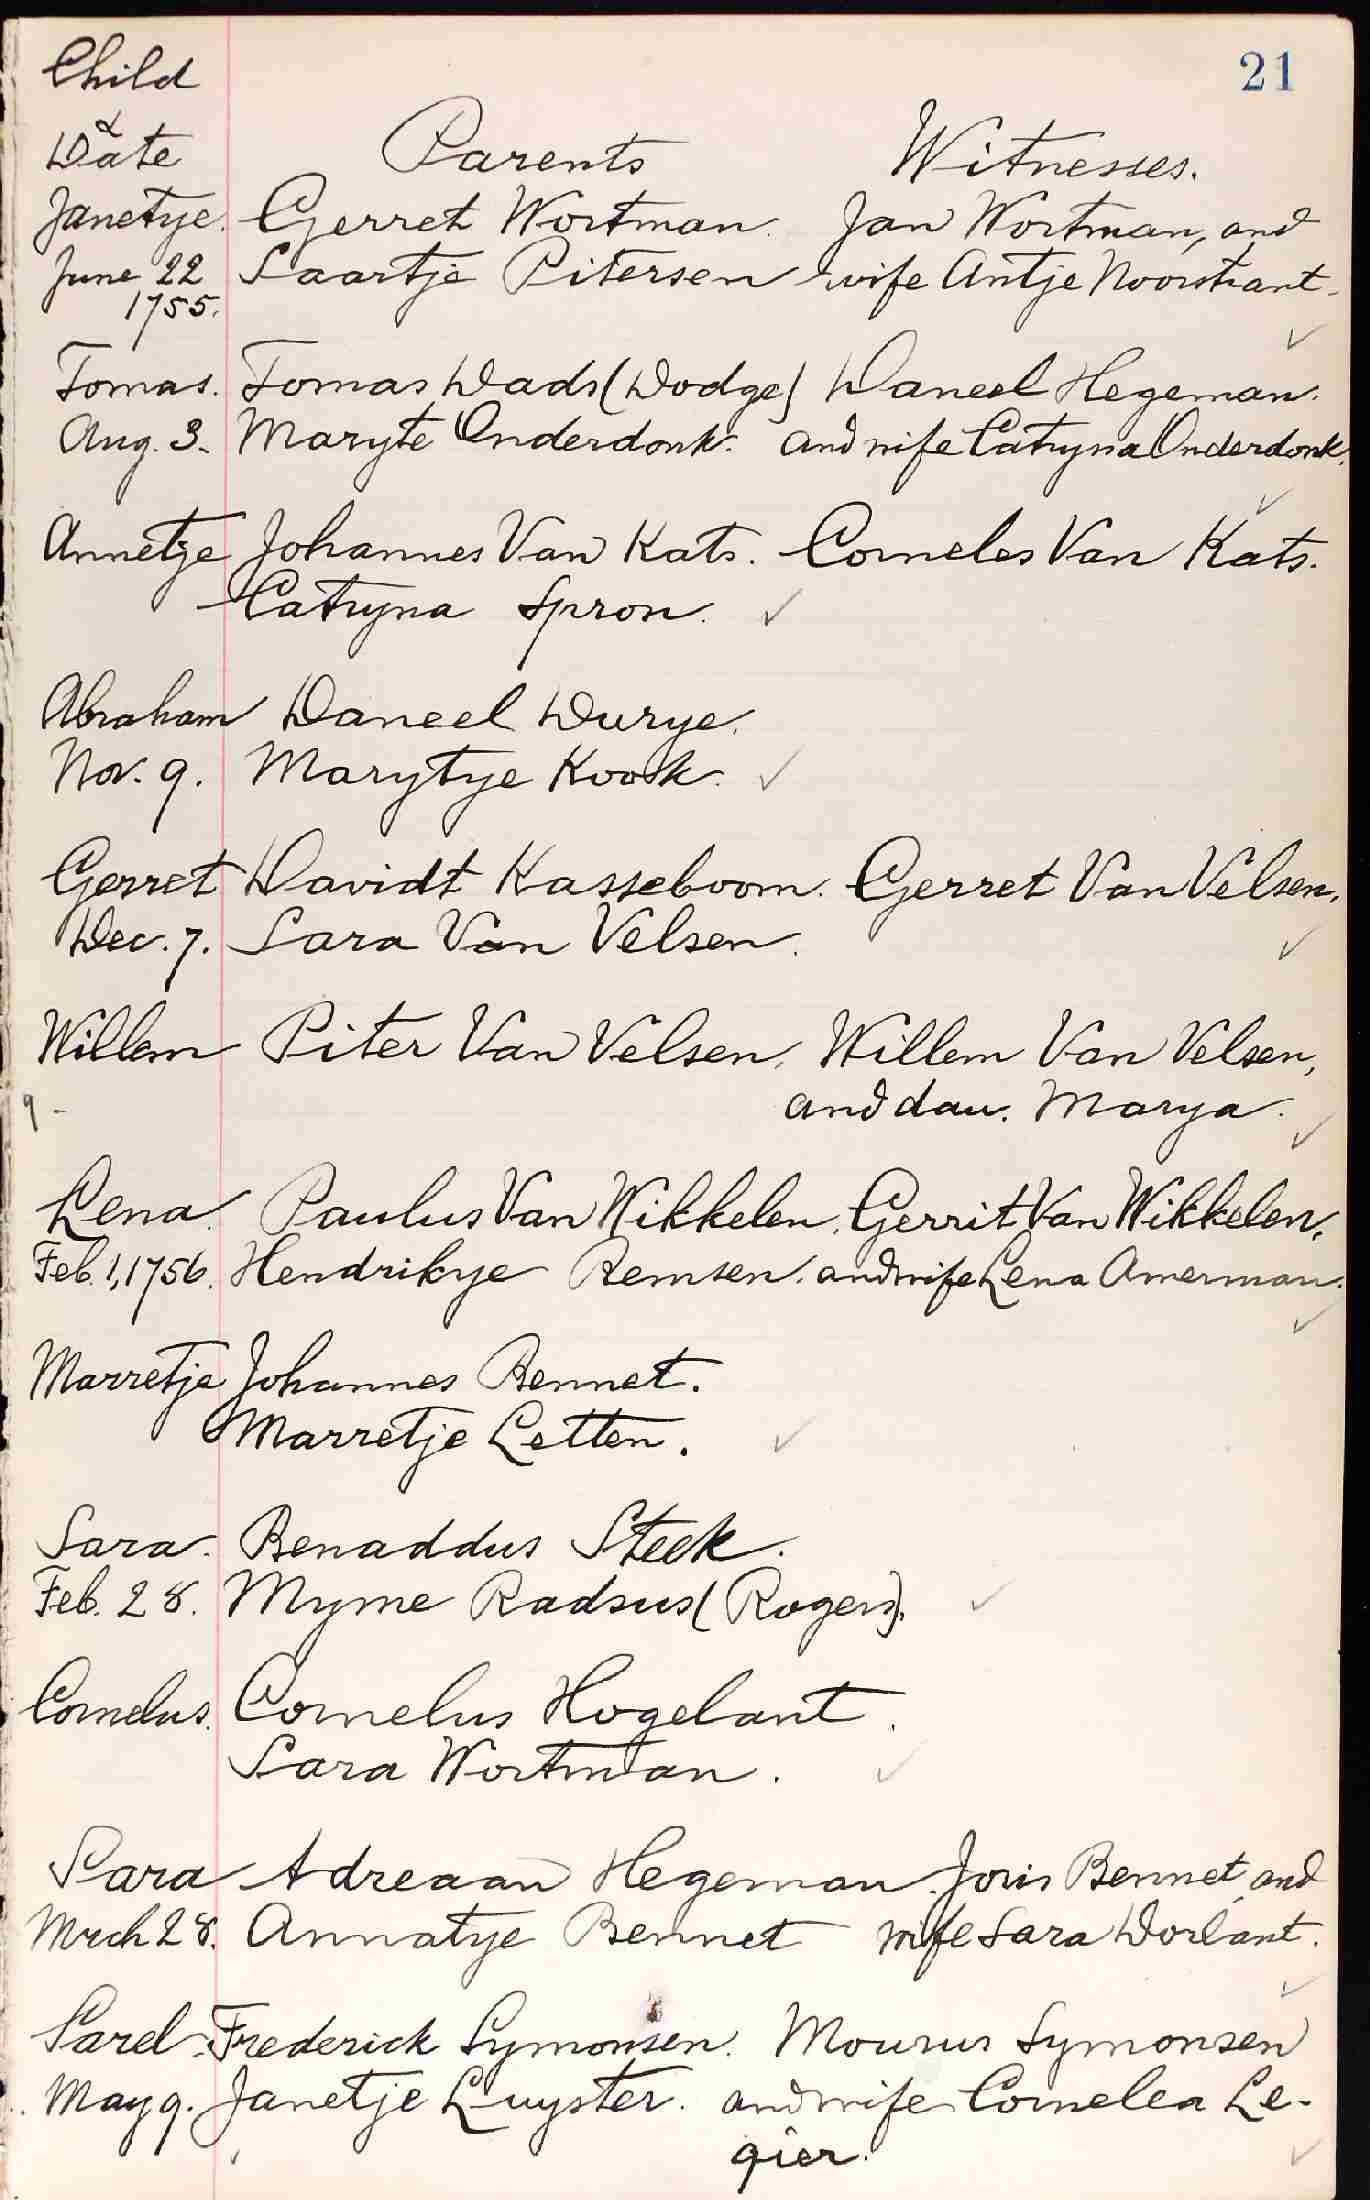 21
Child
&
Date Parents Witnesses.
Janetye. Gerret Wortman. Jan Wortman, and
June 22 Saartje Pitersen wife Antje Noorstrant.
1755.
Tomas. Tomas Dads (Dodge) Daneel Hegeman.
Aug. 3. Maryte Onderdonk. and wife Catryna Onderdonk.
Annetje Johannes Van Kats. Corneles Van Kats.
Catryna Spron.
Abraham Daneel Durye.
Nov. 9. Marytye Kook.
Gerret Davidt Kasseboom. Gerret Van Velsen.
Dec. 7. Sara Van Velsen.
Willem Piter Van Velsen, Willem Van Velsen,
9 - and dau. Marya.
Lena. Paulus Van Wikkelen. Gerrit Van Wikkelen,
Feb. 1, 1756. Hendrikye Remsen. and wife Lena Amerman.
Marretje Johannes Bennet.
Marretje Letten.
Sara. Benaddus Steek.
Feb. 28. Myme Radsus (Rogers).
Cornelus. Cornelus Hogelant.
Sara Wortman.
Sara Adreaan Hegeman. Joris Bennet, and
Mrch 28. Annatye Bennet wife Sara Dorlant.
Sarel. Frederick Symonsen. Mourus Symonsen
May 9. Janetje Luyster. and wife Cornelea Le-
gier.